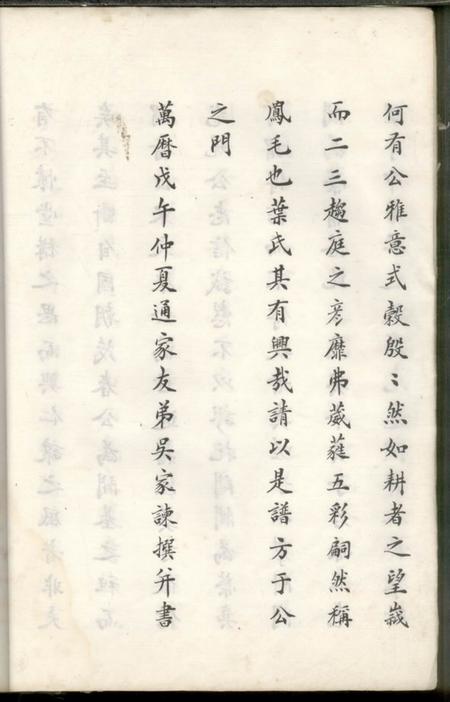 何有公雅意式穀殷〻然如耕者之望歲
而二三趨庭之彥靡弗葳蕤五彩嗣然稱
鳳毛也葉氏其有興哉請以是譜方于公
之門
萬曆戊午仲夏通家友弟吳家諫撰并書